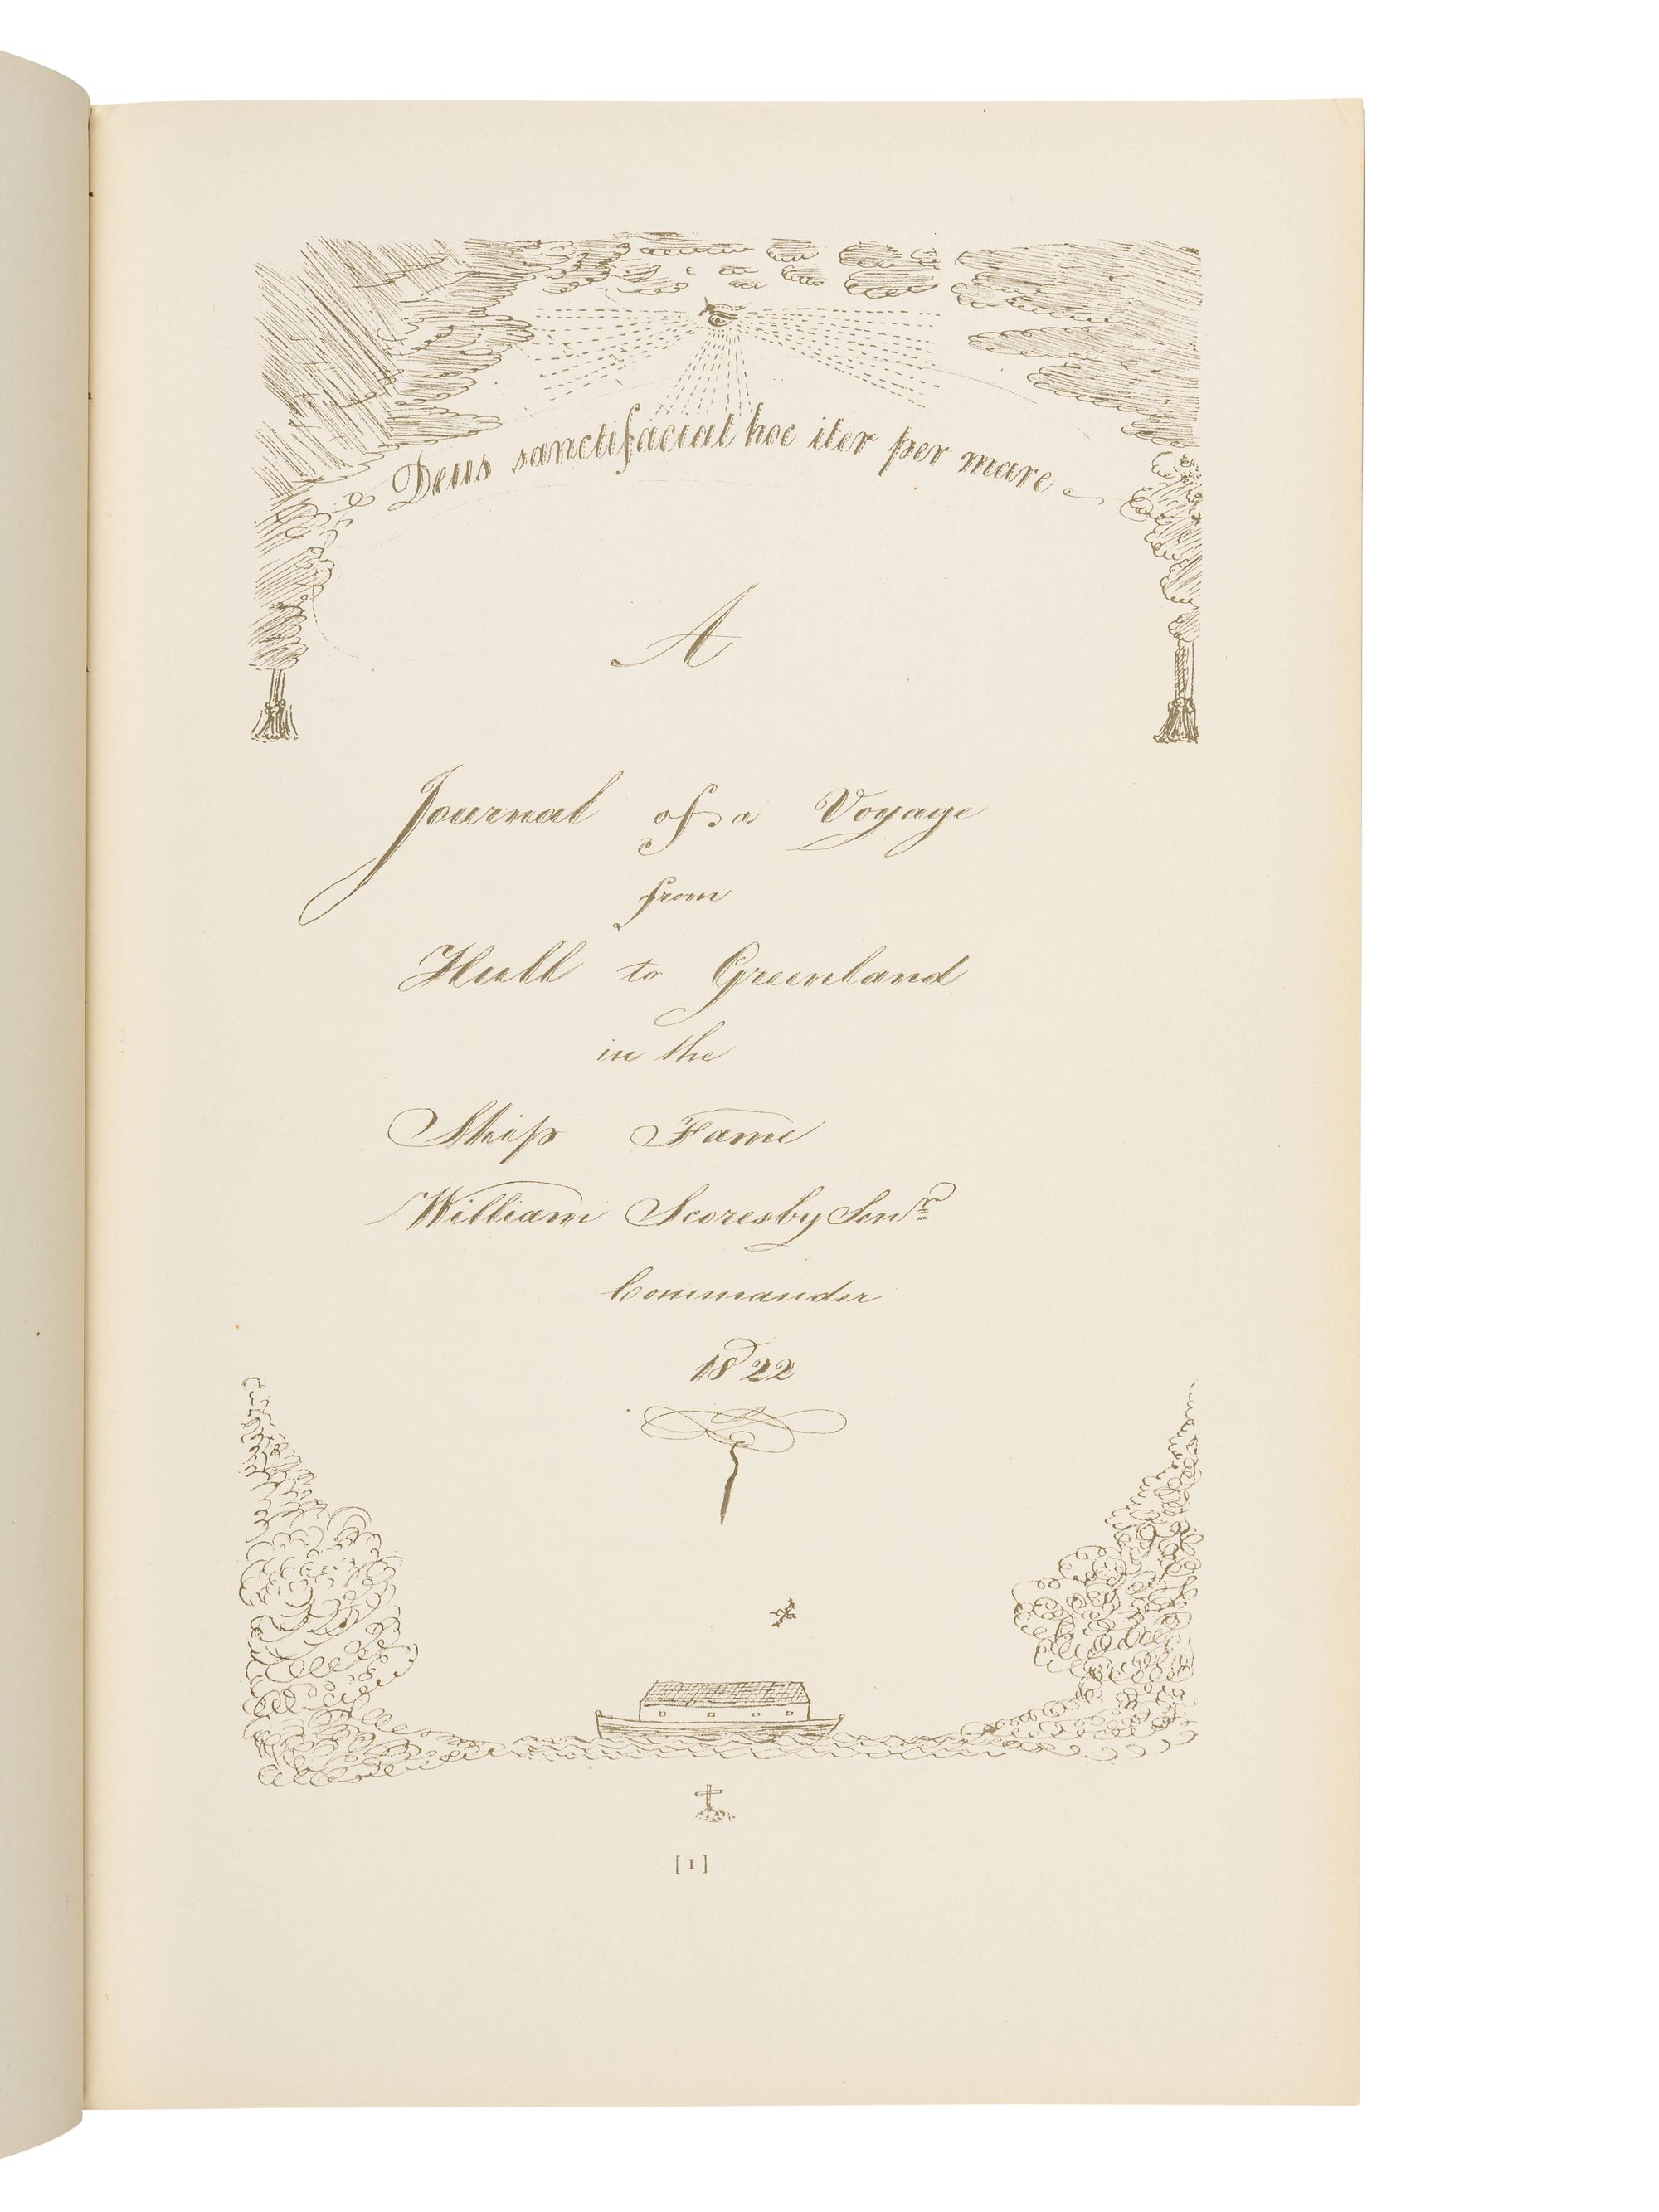 Deus sanctifaciat hoc iter per mare
A
Journal of a Voyage
from
Hull to Greenland
in the
Ship Fame
William Scoresby Senr
Commander
1822
[1]